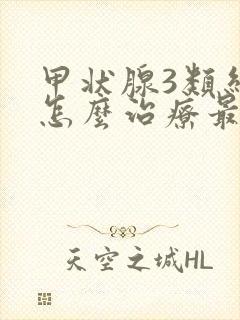 甲状腺3類
怎麼治療最
天空之城HL